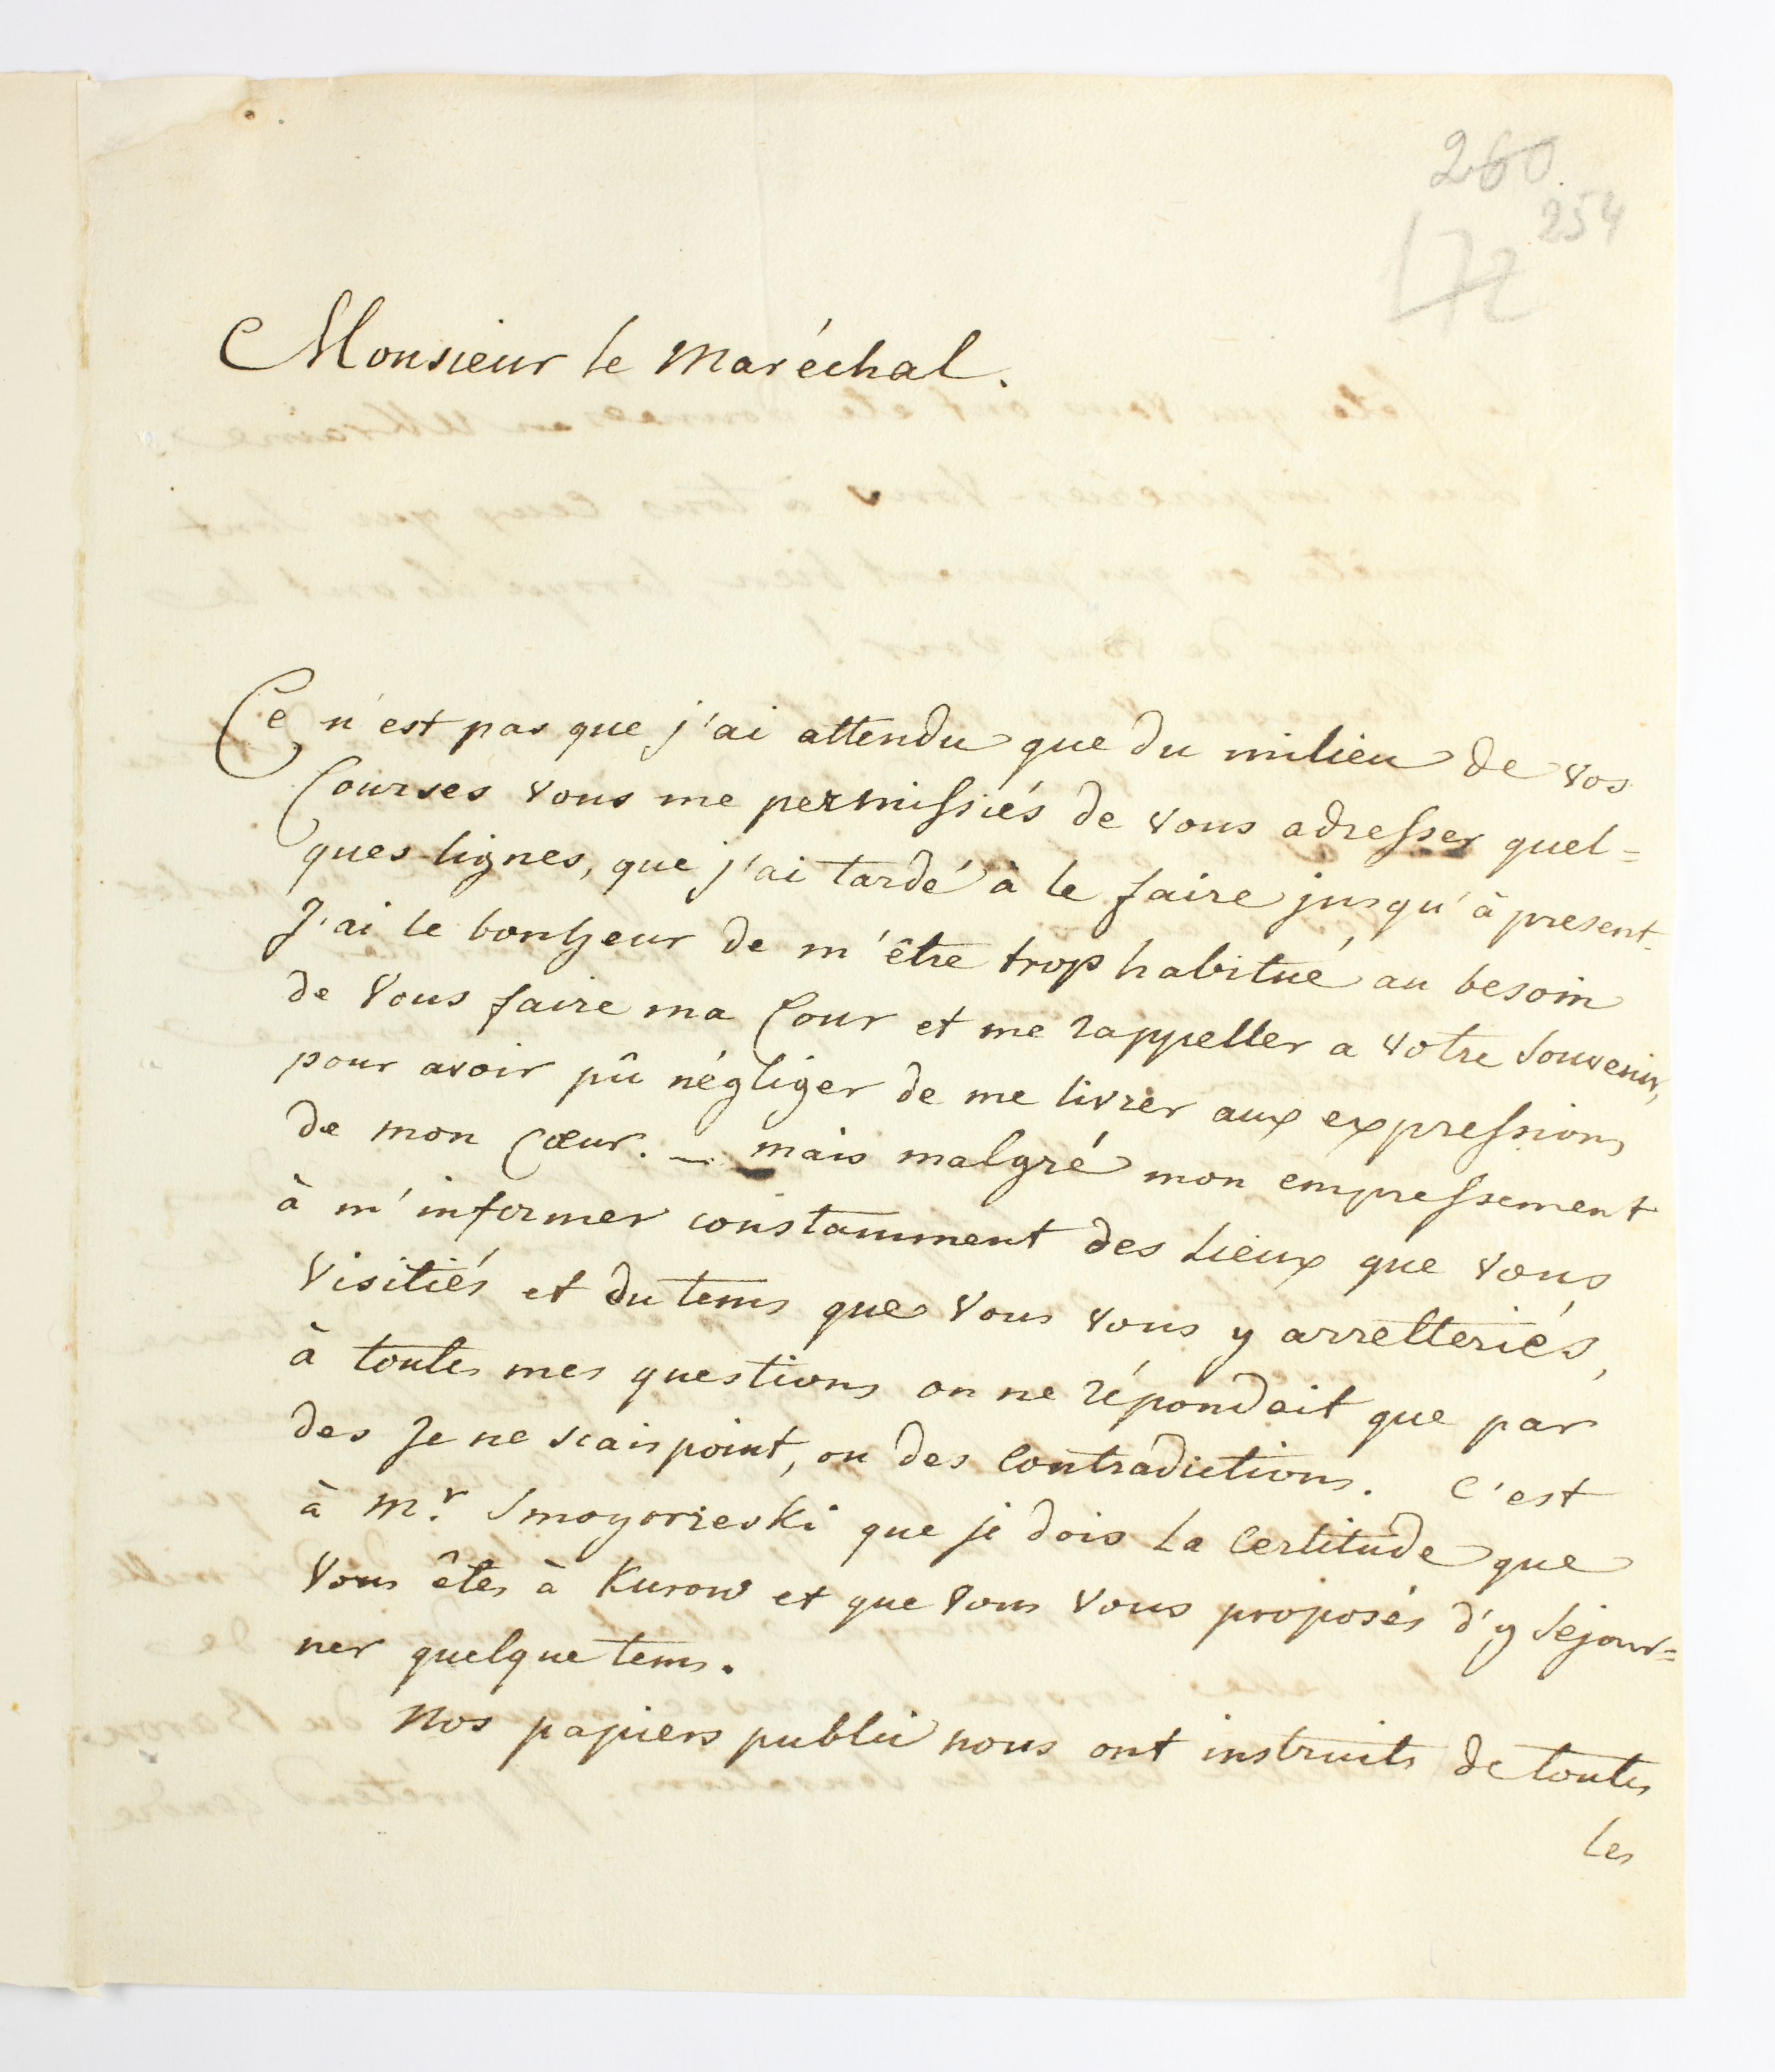 260
254
172
Monsieur le Maréchal.
Ce n'est pas que j'ai attendu que du milieu de vos
Courses vous me permissiés de vous adresser quel=
ques lignes, que j'ai tardé à le faire jusqu'à present.
J'ai le bonheur de m'être trop habitué au besoin
de vous faire ma Cour et me rappeller a votre souvenir,
pour avoir pû négliger de me livrer aux expressions
de mon Cœur. — mais malgré mon empressement
à m'informer constamment des Lieux que vous
visitiés et du tems que vous vous y arretteriés,
à toutes mes questions on ne répondait que par
des Je ne scais point, ou des Contradictions. C'est
à Mr. Smogorzevki que je dois la Certitude que
vous êtes à Kurow et que vous vous proposés d'y séjour=
ner quelque tems.
Nos papiers public nous ont instruits de toutes
les